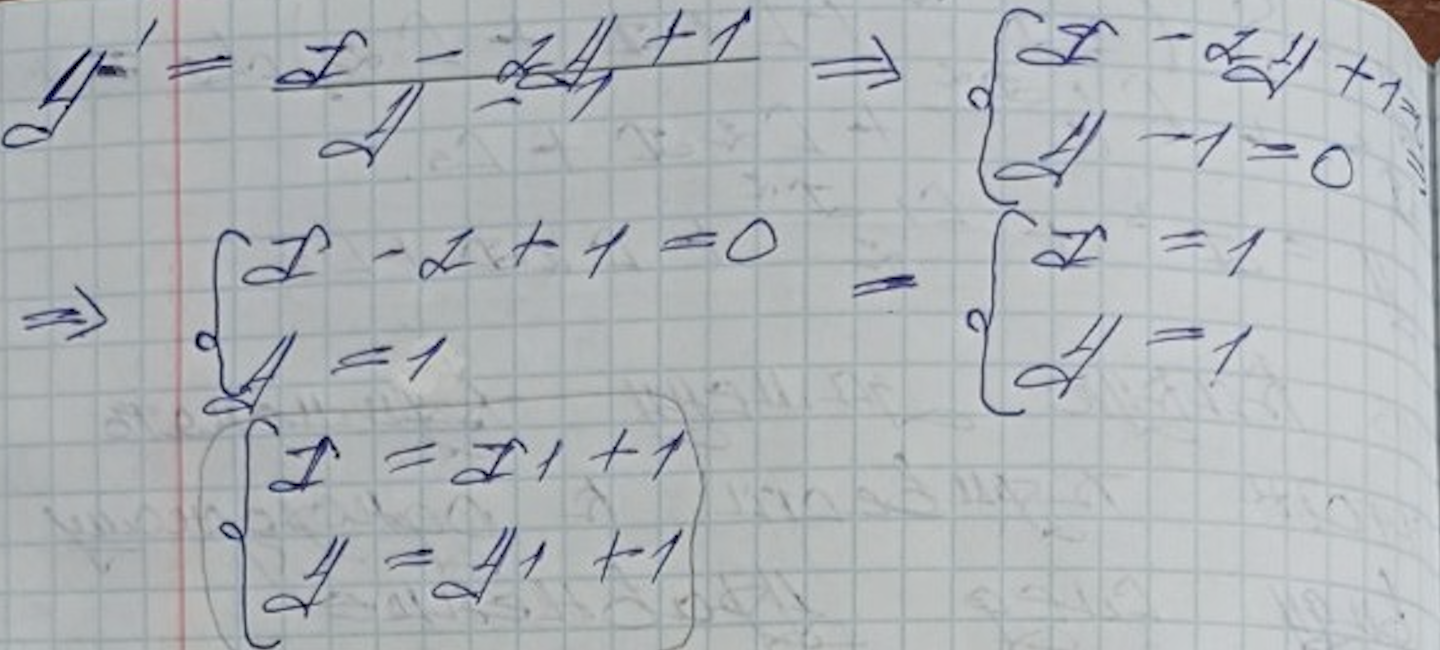 y' = x - 2y + 1 / y - 1 ⇒ { x - 2y + 1 = 0
y - 1 = 0
⇒ { x - 2 + 1 = 0 = { x = 1
y = 1 y = 1
{ x = x1 + 1
y = y1 + 1